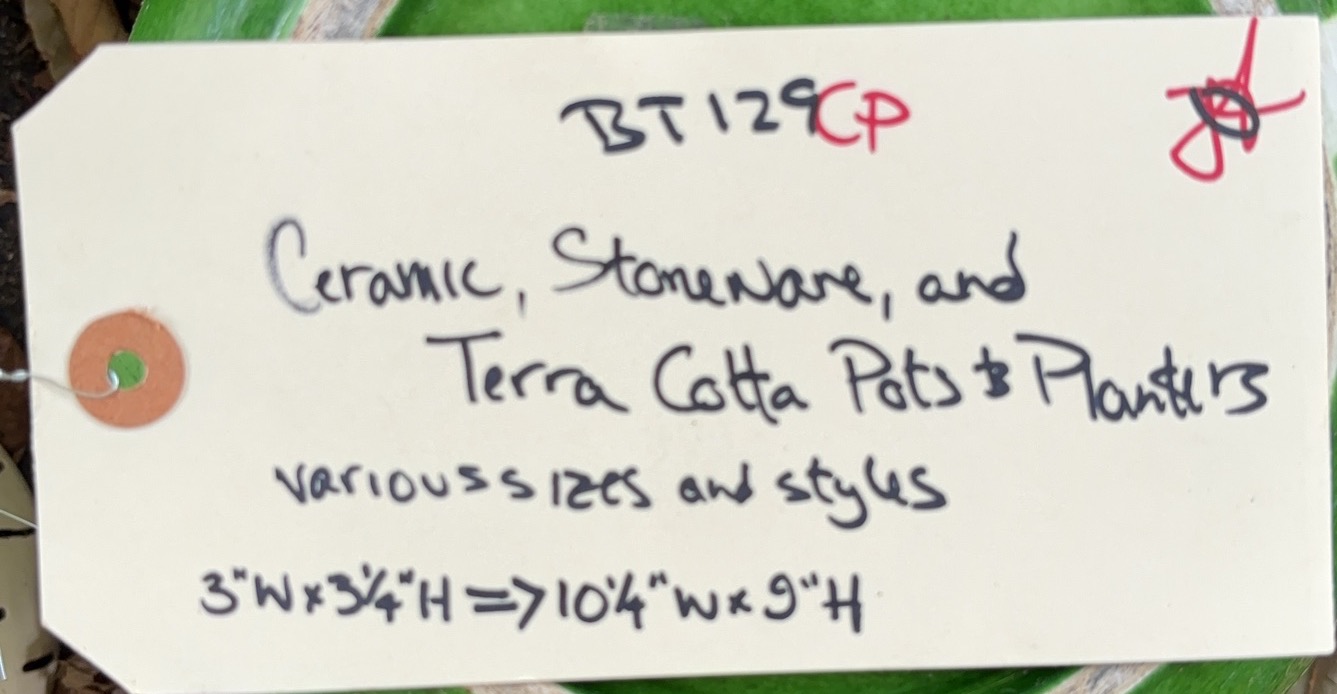 BT129CP
Ceramic, Stoneware, and
Terra Cotta Pots & Planters
various sizes and styles
3"W x 3¼"H => 10¼"W x 9"H